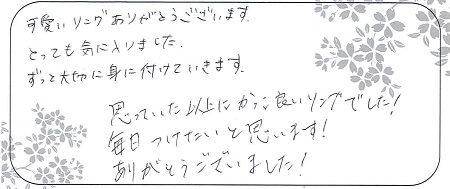 可愛いリングありがとうございます.
とっても気に入りました.
ずっと大切に身に付けていきます.
思っていた以上にかっこ良いリングでした!
毎日つけたいと思います!
ありがとうございました!